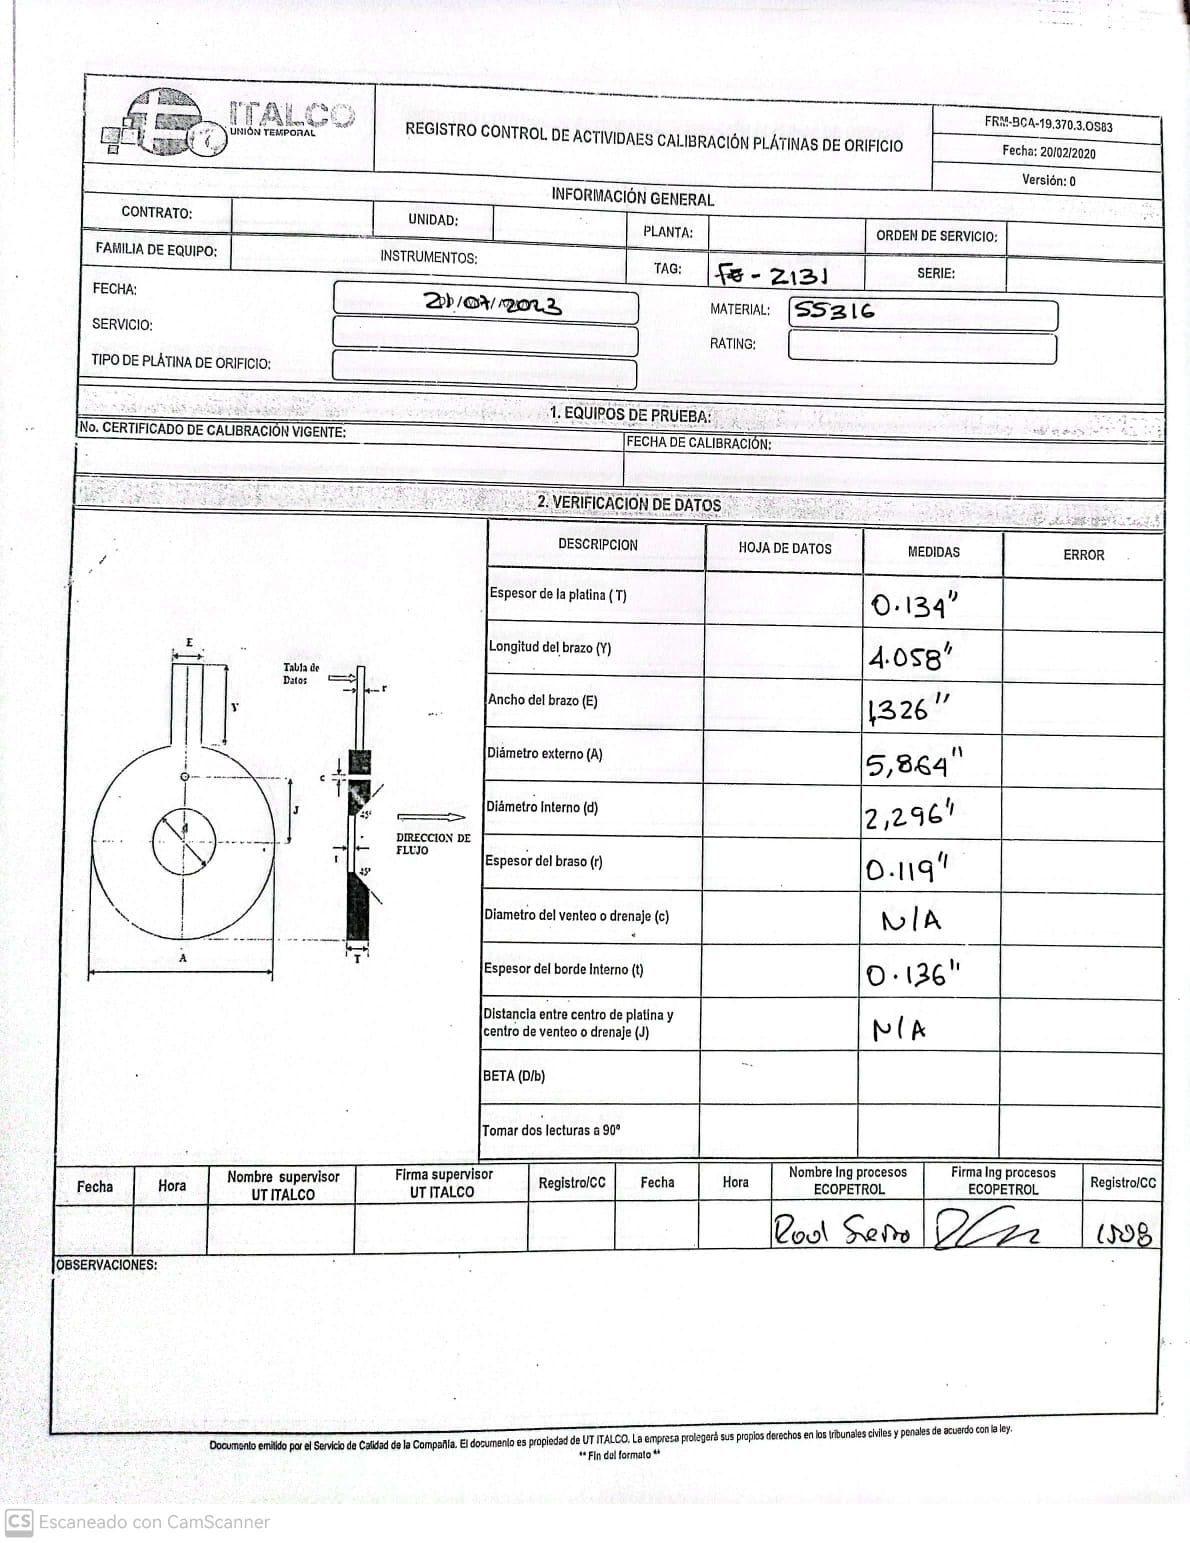 ITALCO
UNIÓN TEMPORAL
REGISTRO CONTROL DE ACTIVIDAES CALIBRACIÓN PLÁTINAS DE ORIFICIO
FRM-BCA-19.370.3.OS83
Fecha: 20/02/2020
Versión: 0
INFORMACIÓN GENERAL
CONTRATO:
UNIDAD:
PLANTA:
ORDEN DE SERVICIO:
FAMILIA DE EQUIPO:
INSTRUMENTOS:
TAG: FE - 2131
SERIE:
FECHA: /07/2023
MATERIAL: SS316
SERVICIO:
RATING:
TIPO DE PLÁTINA DE ORIFICIO:
1. EQUIPOS DE PRUEBA:
No. CERTIFICADO DE CALIBRACIÓN VIGENTE:
FECHA DE CALIBRACIÓN:
2. VERIFICACION DE DATOS
DESCRIPCION HOJA DE DATOS MEDIDAS ERROR
Espesor de la platina ( T) 0.134"
Longitud del brazo (Y) 4.058"
Ancho del brazo (E) 1,326"
Diámetro externo (A) 5,864"
Diámetro Interno (d) 2,296"
Espesor del braso (r) 0.119"
Diametro del venteo o drenaje (c) N/A
Espesor del borde Interno (t) 0.136"
Distancia entre centro de platina y
centro de venteo o drenaje (J) N/A
BETA (D/b)
Tomar dos lecturas a 90º
E
Tabla de
Datos
r
Y
c
J
45º
d
DIRECCION DE
FLUJO
t
45º
A
T
Fecha Hora Nombre supervisor
UT ITALCO
Firma supervisor
UT ITALCO
Registro/CC Fecha Hora Nombre Ing procesos
ECOPETROL
Firma Ing procesos
ECOPETROL
Registro/CC
OBSERVACIONES:
Documento emitido por el Servicio de Calidad de la Compañía. El documento es propiedad de UT ITALCO. La empresa prolegerá sus propios derechos en los tribunales civiles y penales de acuerdo con la ley.
** Fin del formato **
CS Escaneado con CamScanner